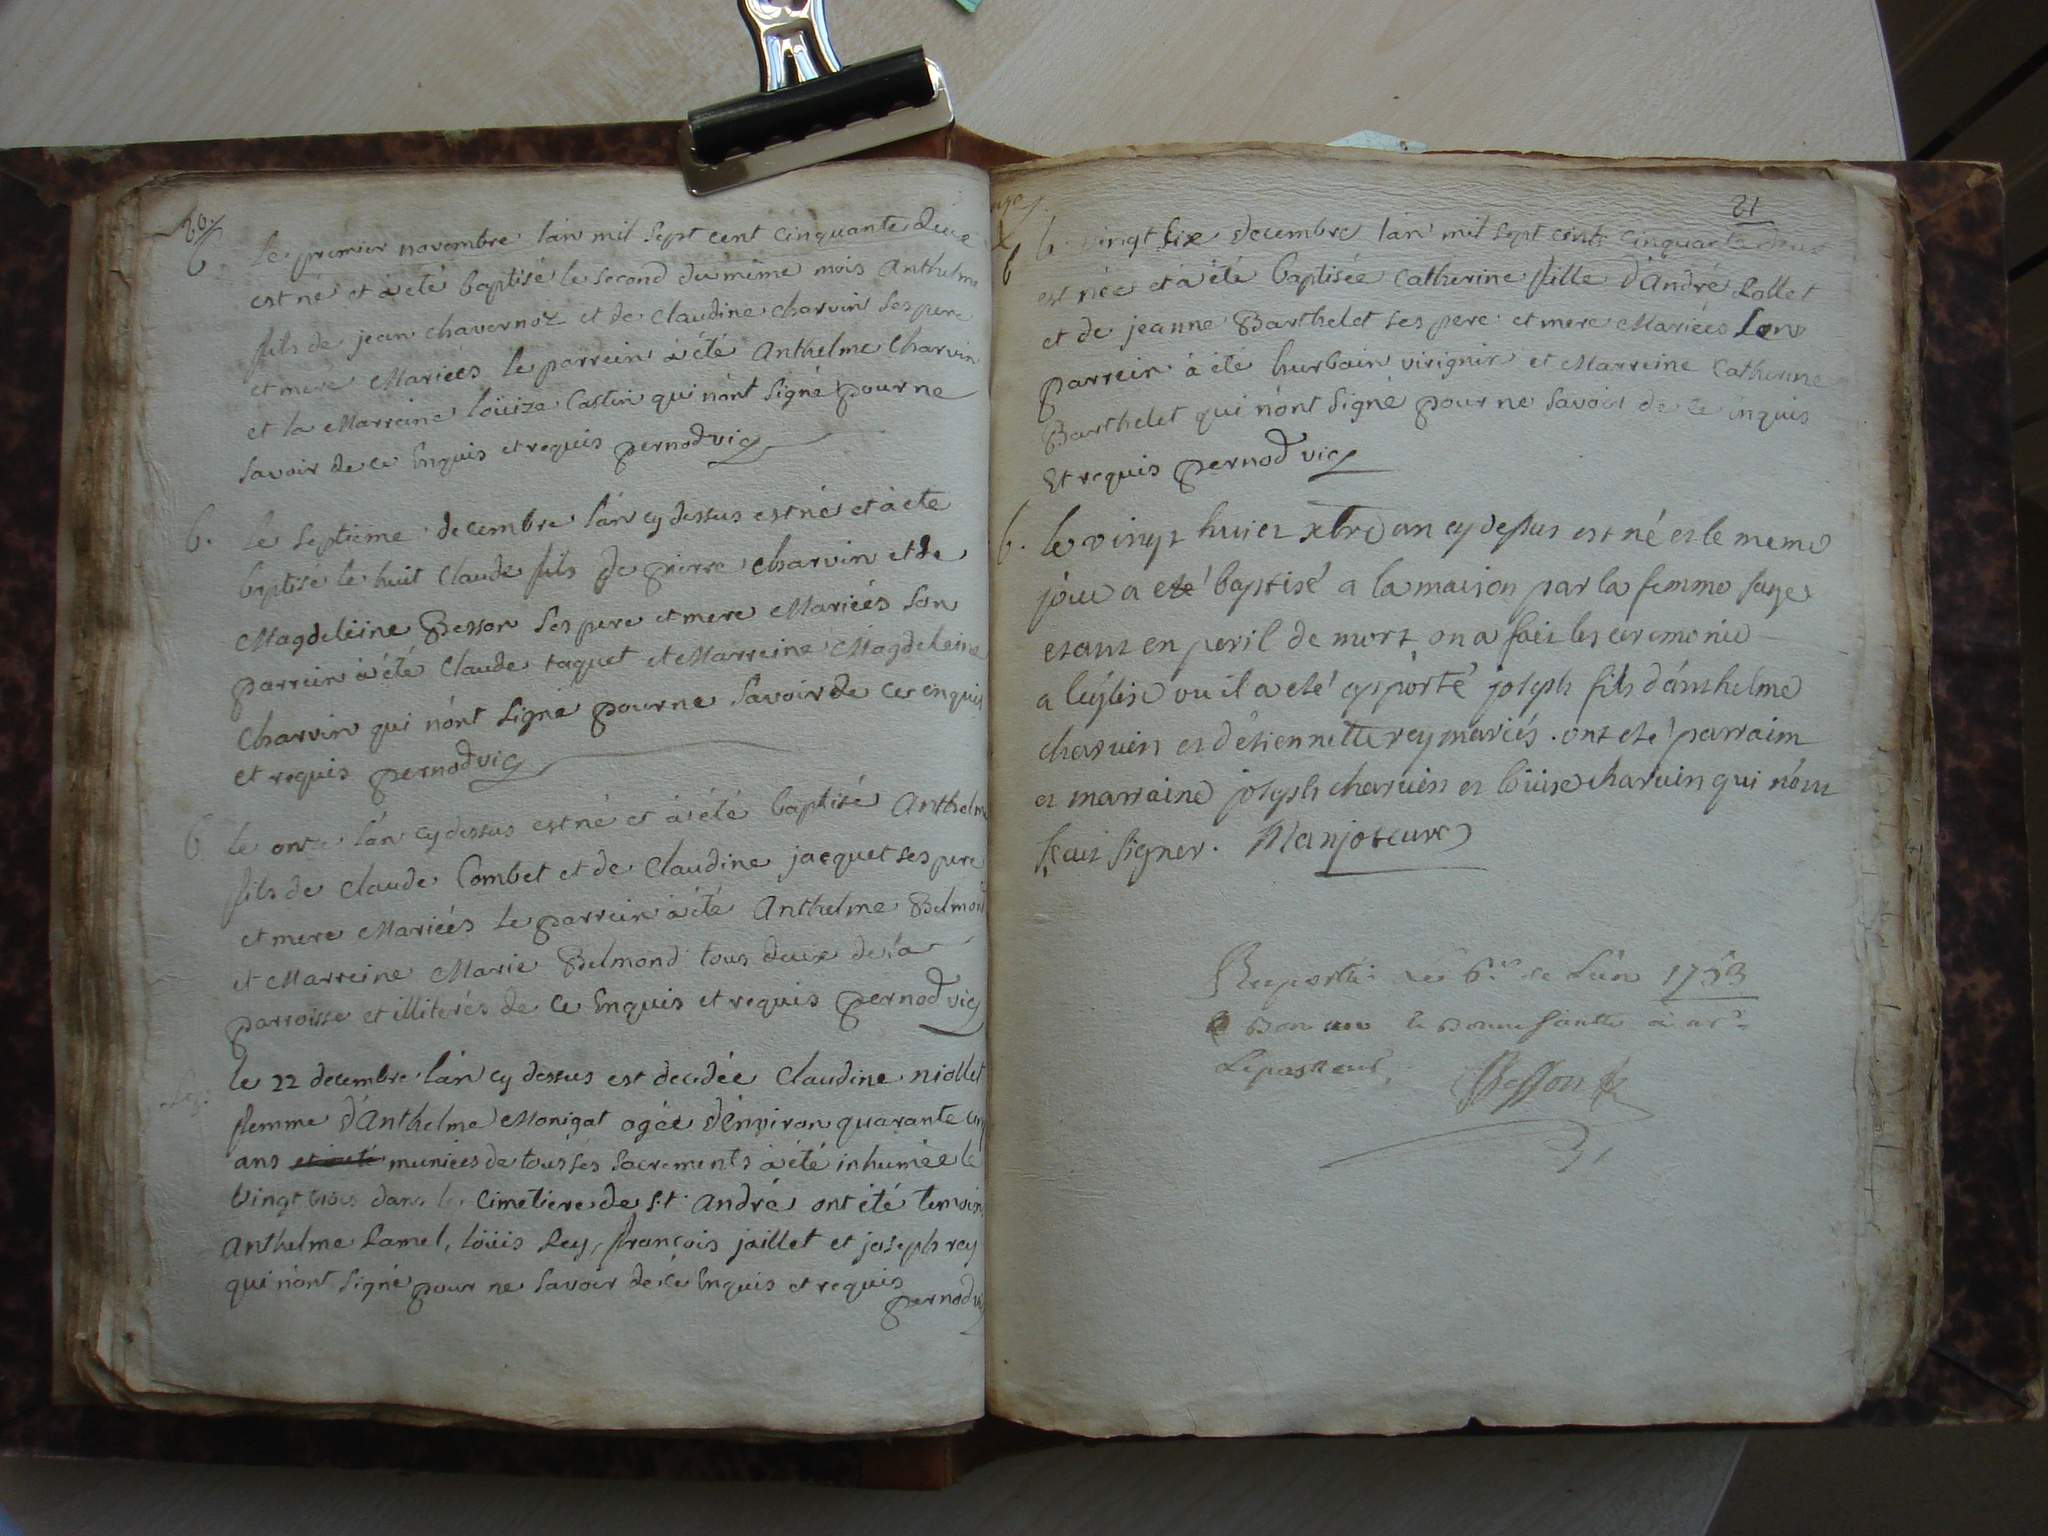 20.
b le premier novembre lan mil sept cent cinquante deux
est né et à été baptisé le second du même mois Anthelme
fils de jean chavernoz et de Claudine charvin ses pere
et mere Mariées le parrein à été Anthelme Charvin
et la Marreine loüize Castin qui nónt signé pour ne
savoir de ce Enquis et requis pernod vic
b. le septième decembre lán cy dessus est né et à été
baptisé le huit Claude fils de pierre charvin et de
Magdeleine Besson ses pere et mere Mariées son
parrein à été Claude taguet et Marreine Magdeleine
Charvin qui nónt signé pour ne savoir de ce enquis
et requis pernod vic
b le onze lán cy dessus est né et à été baptisé Anthelme
fils de Claude Combet et de Claudine jacquet ses pere
et mere Mariées le parrein à été Anthelme Belmond
et Marreine Marie Belmond tous deux de la
parroisse et illiterés de ce Enquis et requis pernod vic
le 22 decembre lán cy dessus est decedée Claudine niollet
femme d'Anthelme Monigat agée d'environ quarante cinq
ans et à été muniées de tous ses sacrements à été inhumée le
vingt trois dans le Cimetiere de St. André ont été temoins
Anthelme Lamel, loüis Rey, françois jaillet et joseph rey
qui nónt signé pour ne savoir de ce Enquis et requis
pernod vic
21
b le vingt six decembre lan mil sept cents cinquante deux
est née et à été baptisée Catherine fille d'André Collet
et de jeanne Barthelet ses pere et mere Mariées son
parrein à été hurbain virignin et Marreine Catherine
Barthelet qui nónt signé pour ne savoir de ce Enquis
Et requis pernod vic
b. le vingt huict xbre an cy dessus est né et le meme
jour a eté baptisé a la maison par la femme sage
etant en peril de mort, on a fait les ceremonie
a leglise ou il a eté apporté joseph fils dánthelme
charvin et d'étiennette rey mariés. ont eté parrain
et marraine joseph charvin et loüise charvin qui nónt
sçait signer. Manjot curé
1753
Besson